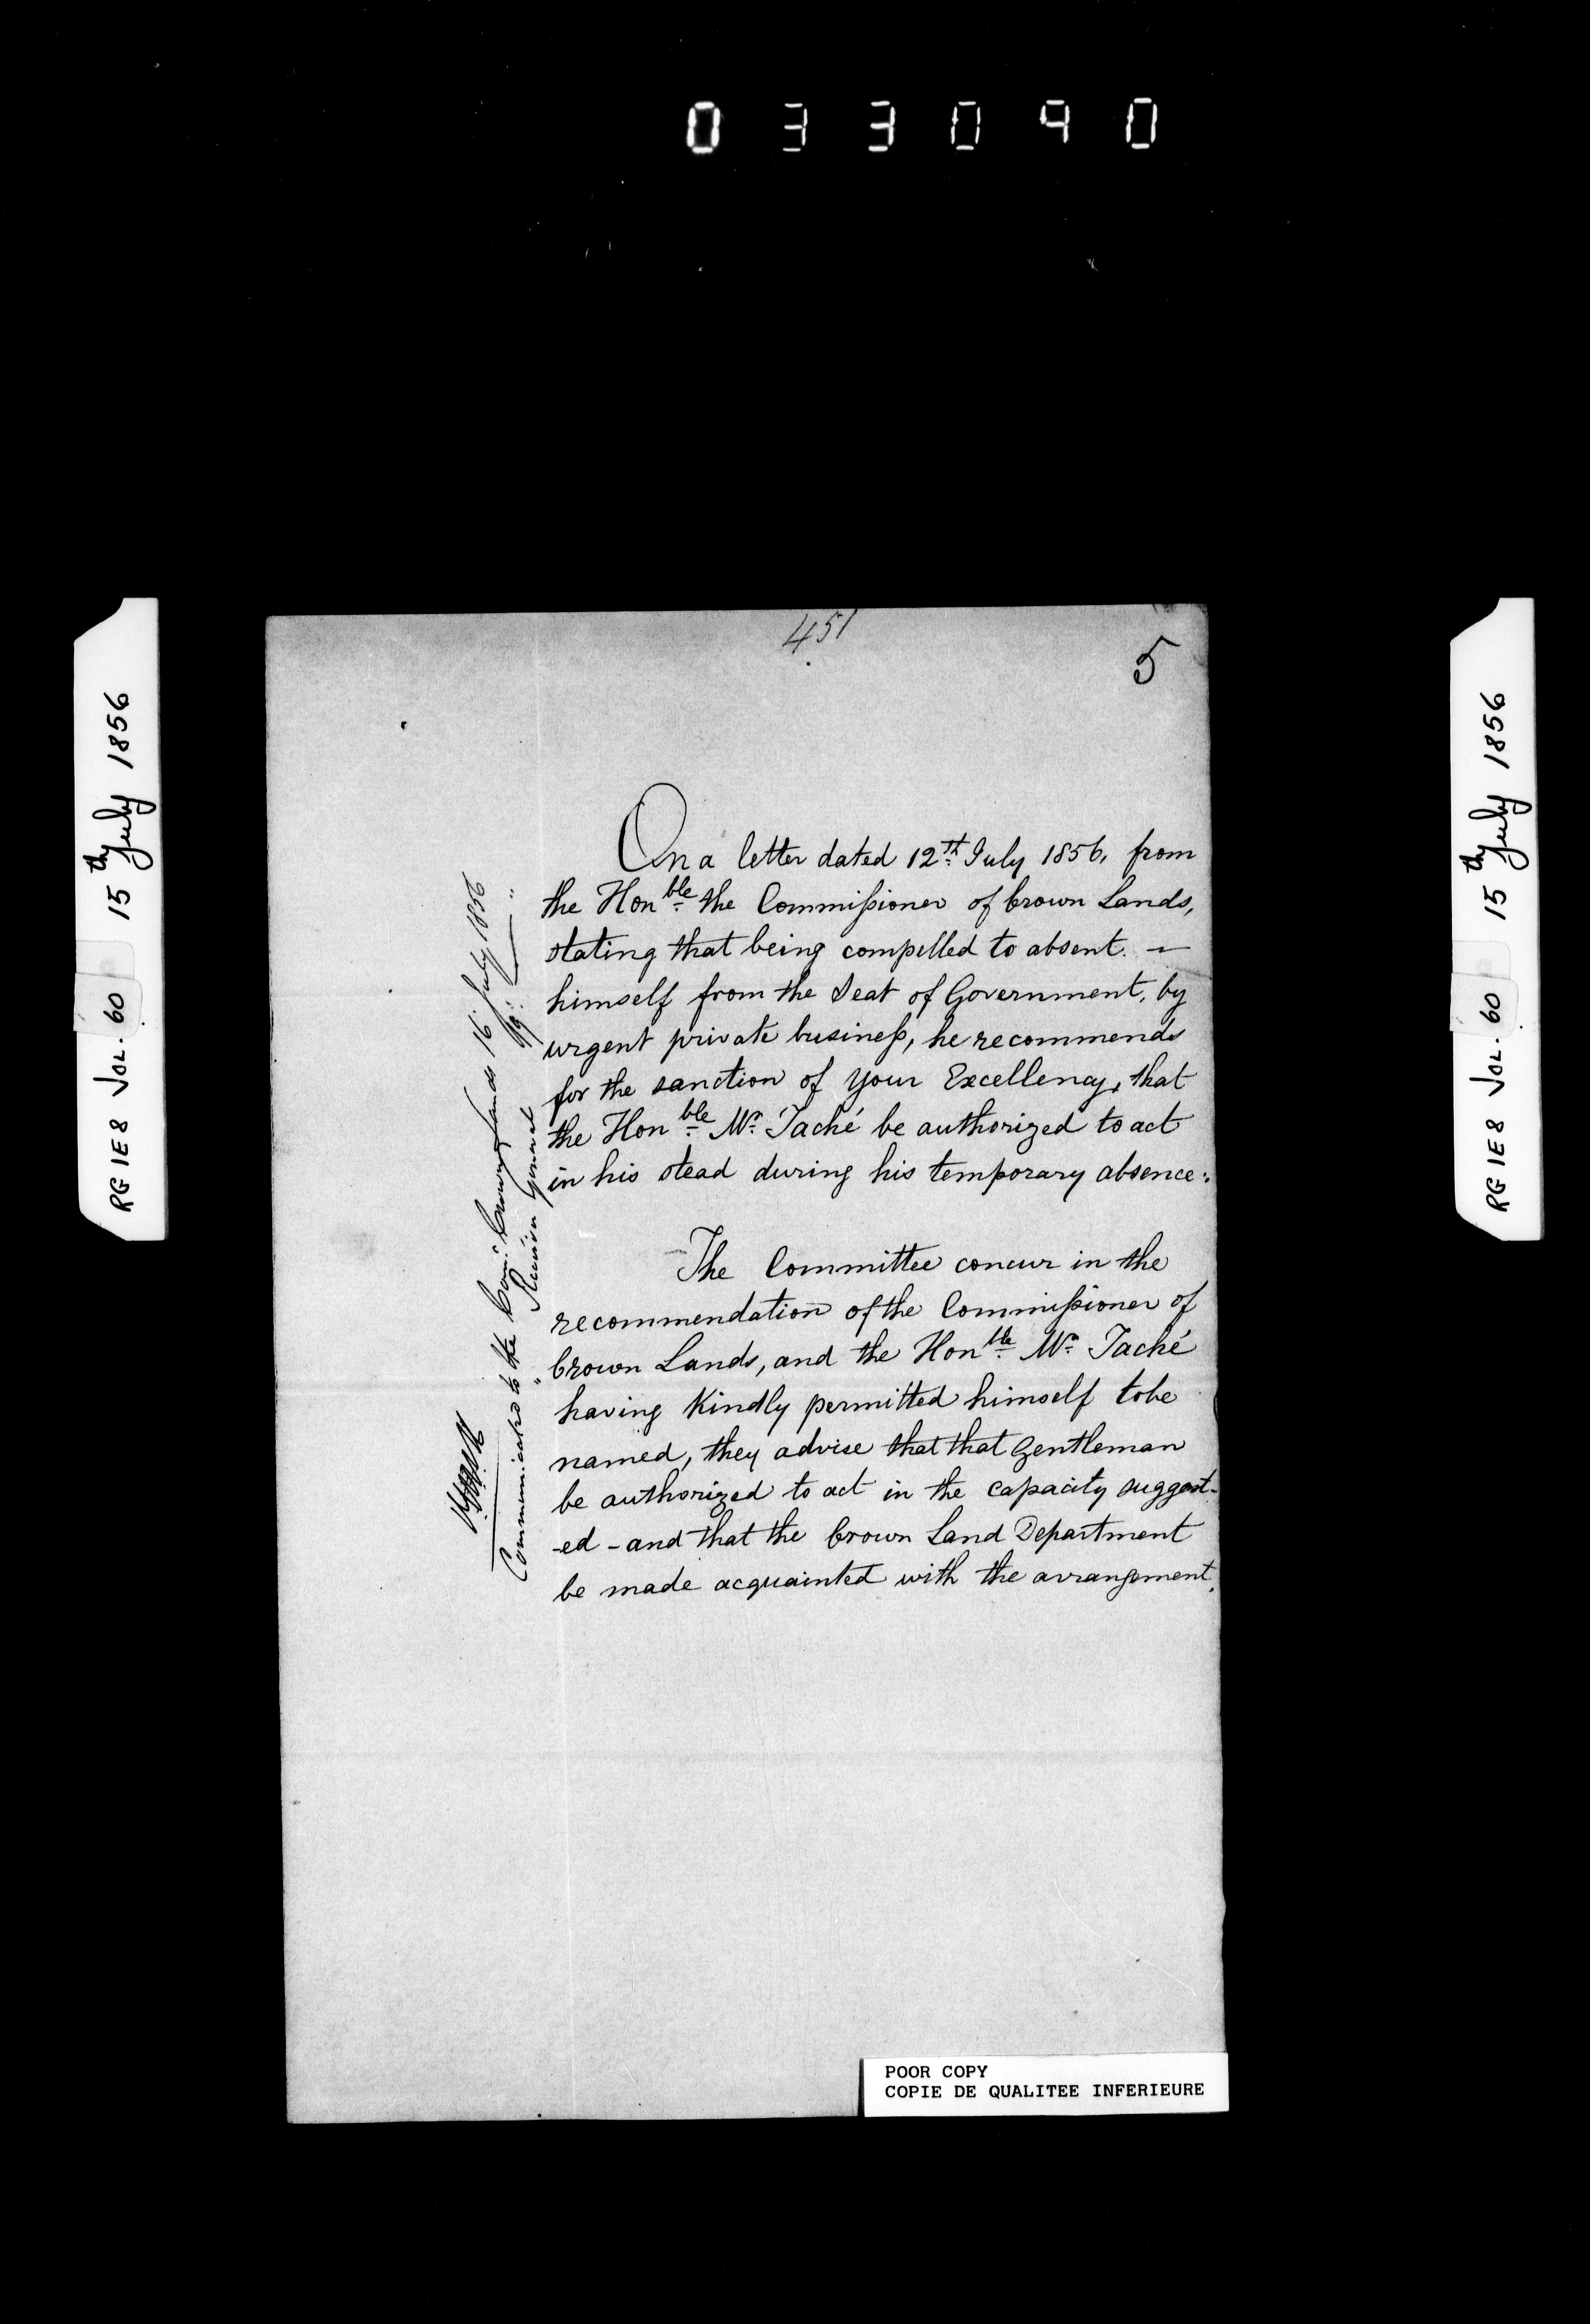 033090
451
5
On a letter dated 12th July 1856, from
the Honble the Commissioner of Crown Lands,
stating that being compelled to absent. —
himself from the Seat of Government, by
urgent private business, he recommends
for the sanction of Your Excellency, that
the Honble Mr. Taché be authorized to act
in his stead during his temporary absence:
The Committee concur in the
recommendation of the Commissioner of
Crown Lands, and the Honble Mr. Taché
having Kindly permitted himself to be
named, they advise that that Gentleman
be authorized to act in the capacity suggest-
-ed - and that the Crown Land Department
be made acquainted with the arrangement.
Communicated to the Comr. Crown Lands 16. July 1856
" Receiver General
RG 1E8 VOL. 60 15th July 1856
RG 1E8 VOL. 60 15th July 1856
POOR COPY
COPIE DE QUALITEE INFERIEURE